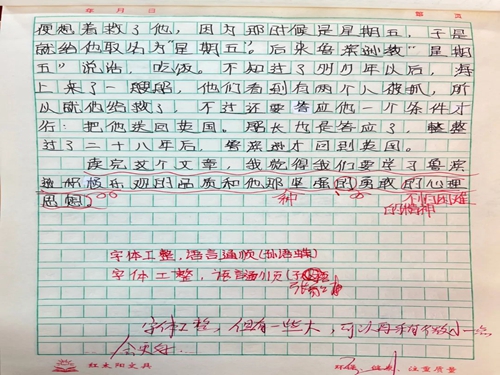 年 月 日
便想着救了他，因为那时候是星期五，于是
就给他取名为"星期五"。后来鲁宾孙教"星期
五"说话，吃饭。不知过了多少年以后，海
上来了一艘船，他们看到有两个人被抓，所
以就他给救了，不过还要答应他一个条件才
行：把他送回英国。船长也是答应了，整整
过了二十八年后，鲁宾孙才回到英国。
读完这个文章，我觉得我们要学习鲁宾
逊积极乐观的品质和他那坚强的勇敢的心理
思想。
种
不怕困难
的精神
字体工整，语言通顺
字体工整，语言通顺
字体工整，但有一些大，可以再稍微小一点
会更好
红太阳文具
注重质量